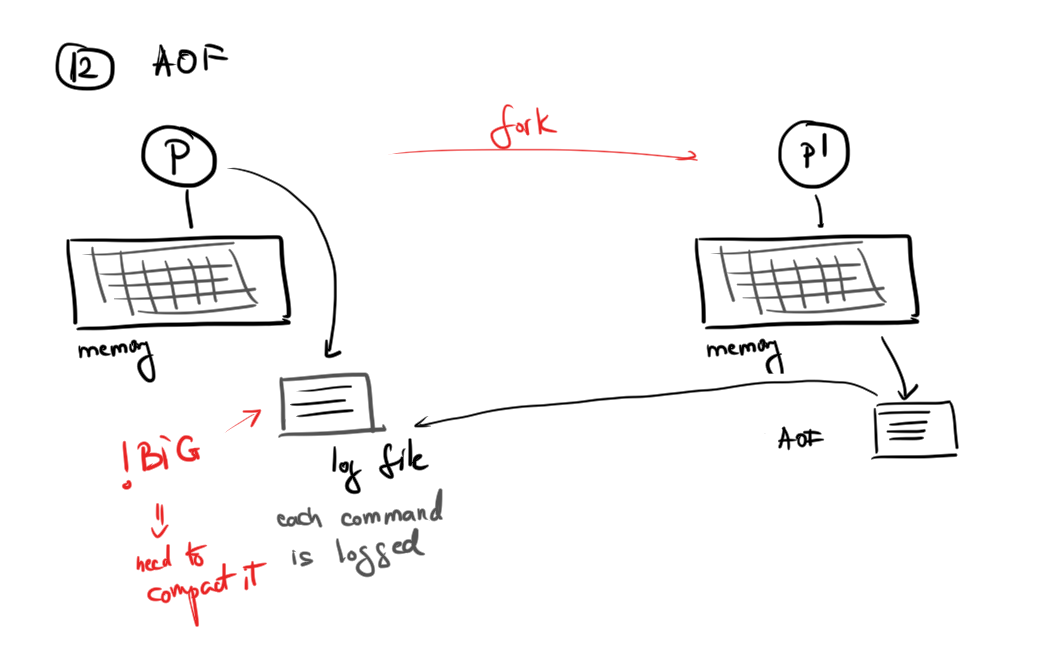 12 AOF
fork
P
P'
memory
memory
log file
AOF
! BiG
each command
is logged
need to
compact it